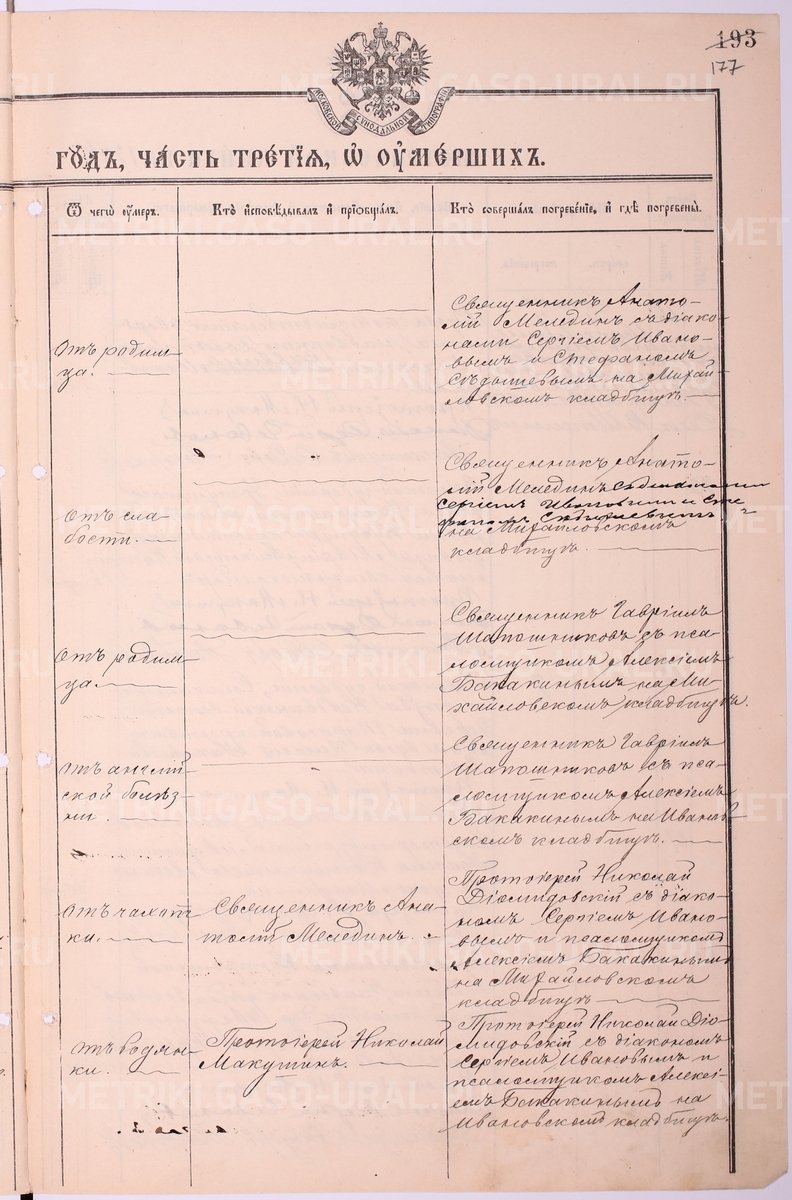 193
177
МОСКОВСКОЙ СѴНОДАЛЬНОЙ ТИПОГРАФІИ
ГОДЪ, ЧАСТЬ ТРЕТІЯ, Ѡ ОУМЕРШИХЪ.
Ѿ чегѡ оумеръ.
Кто исповѣдывалъ и пріобщалъ.
Кто совершалъ погребеніе, и гдѣ погребены.
Отъ родим-
ца.
Священникъ Анато-
лій Мелединъ съ діако-
нами Сергіемъ Ивано-
вымъ и Стефаномъ
на Михай-
ловскомъ кладбищѣ.
Отъ сла-
бости.
Священникъ Анато-
лій Мелединъ съ діаконами
Сергіемъ Ивановымъ и Сте-
фаномъ
на Михайловскомъ
кладбищѣ.
Отъ родим-
ца.
Священникъ Гавріилъ
Шапошниковъ съ пса-
ломщикомъ Алексіемъ
Бакакинымъ на Ми-
хайловскомъ кладбищѣ.
Отъ англій-
ской болѣз-
ни.
Священникъ Гавріилъ
Шапошниковъ съ пса-
ломщикомъ Алексіемъ
Бакакинымъ на Иванов-
скомъ кладбищѣ.
Отъ чахот-
ки.
Священникъ Ана-
толій Мелединъ.
Протоіерей Николай
Діомидовскій съ діако-
номъ Сергіемъ Ивано-
вымъ и псаломщикомъ
Алексіемъ Бакакинымъ
на Михайловскомъ
кладбищѣ
Отъ водян-
ки.
Протоіерей Николай
Макушинъ.
Протоіерей Николай Діо-
мидовскій съ діакономъ
Сергіемъ Ивановымъ и
псаломщикомъ Алексі-
емъ Бакакинымъ на
Ивановскомъ кладбищѣ.
METRIKI.GASO-URAL.RU